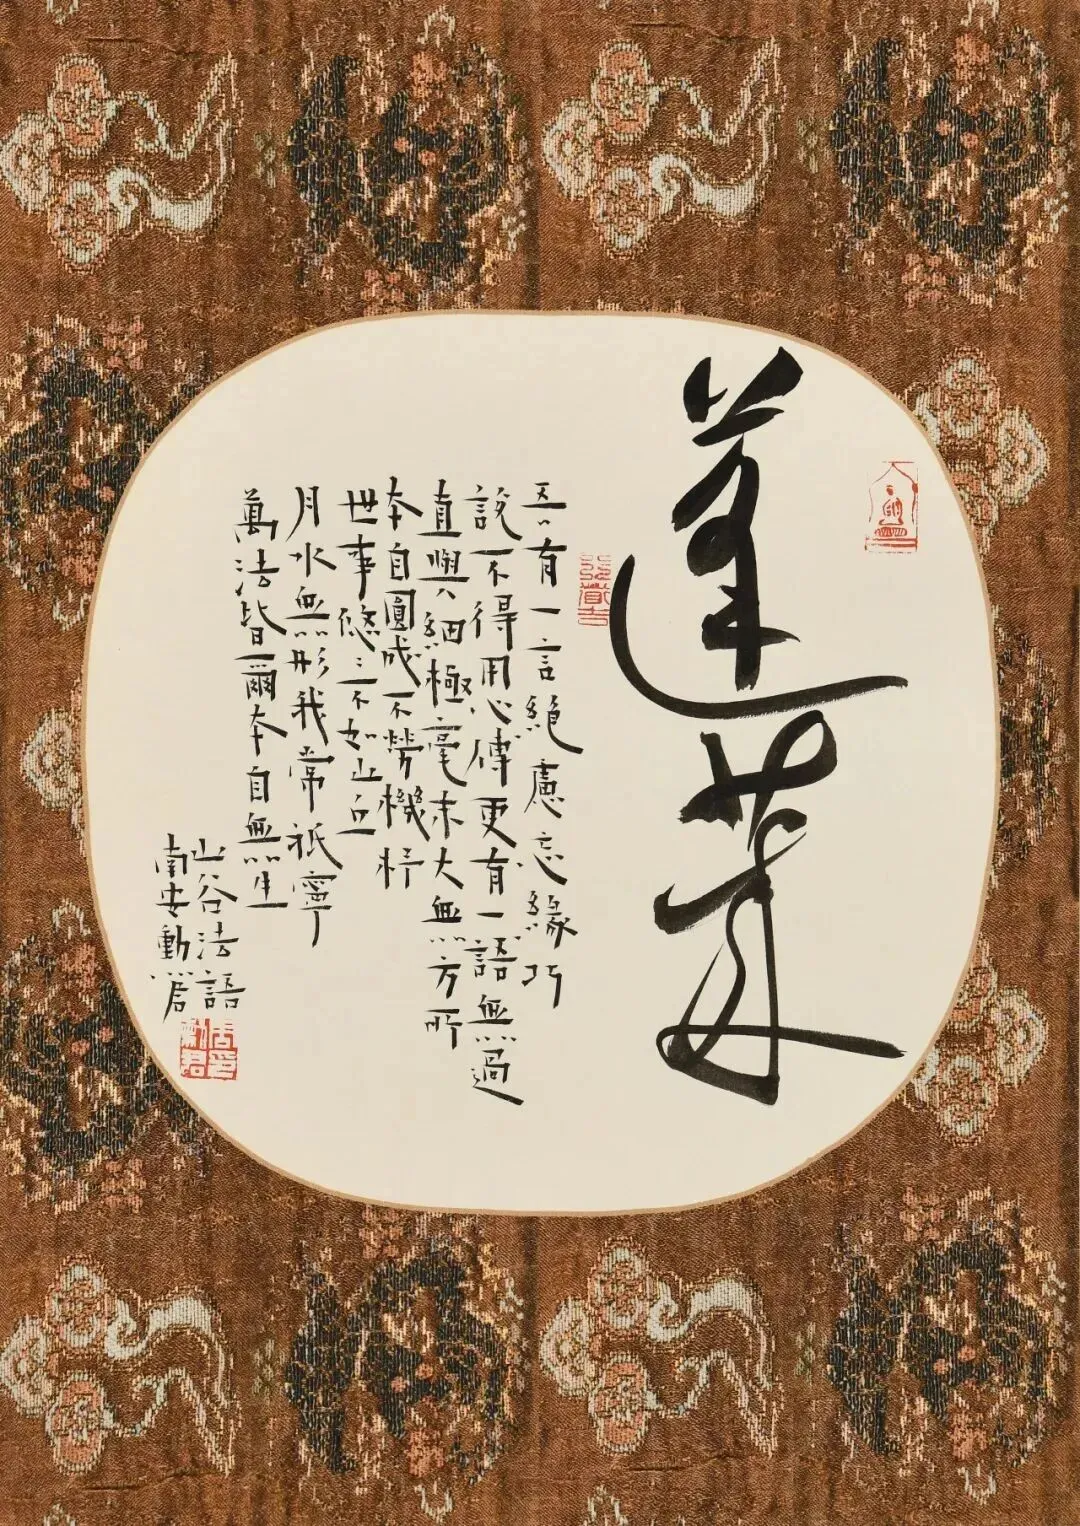 蓬萊
吾有一言絕慮忘緣巧
說不得用心傳更有一語無過
直與細極毫末大無方所
本自圓成不勞機杼
世事悠〻不如山丘
月水無形我常祇寧
萬法皆爾本自無生
山谷法語
南安勳君